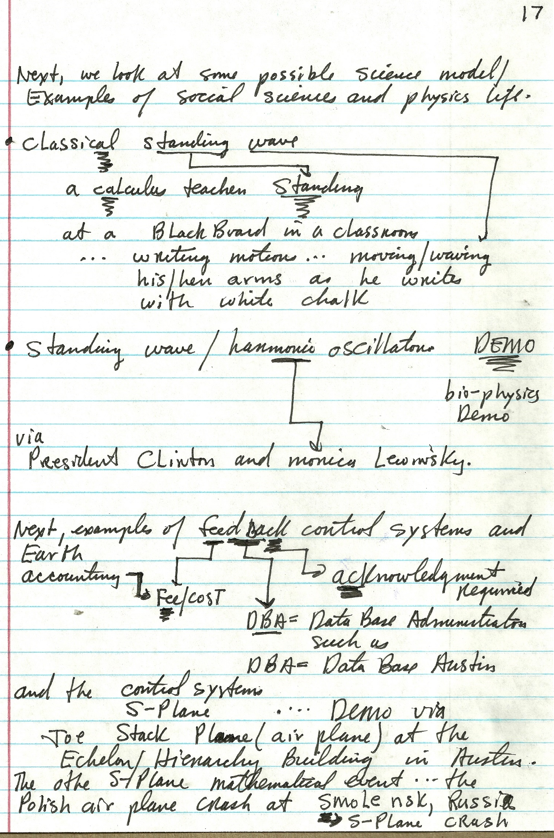 17
Next, we look at some possible science model/
Examples of social sciences and physics life.
• classical standing wave
a calculus teacher Standing
at a BlackBoard in a classroom
... writing motion ... moving/waving
his/her arms as he writes
with white chalk
• Standing wave / harmonic oscillator DEMO
bio-physics
Demo
via
President Clinton and monica Lewinsky.
Next, examples of feedback control systems and
Earth
accounting
acknowledgment
Required
Fee/cost
DBA = Data Base Administrator
such as
DBA = Data Base Austin
and the control systems
S-Plane .... Demo via
Joe Stack Plane (air plane) at the
Echelon/Hierarchy Building in Austin.
The othe S-Plane mathematical event ... the
Polish air plane crash at Smolensk, Russia
S-Plane crash